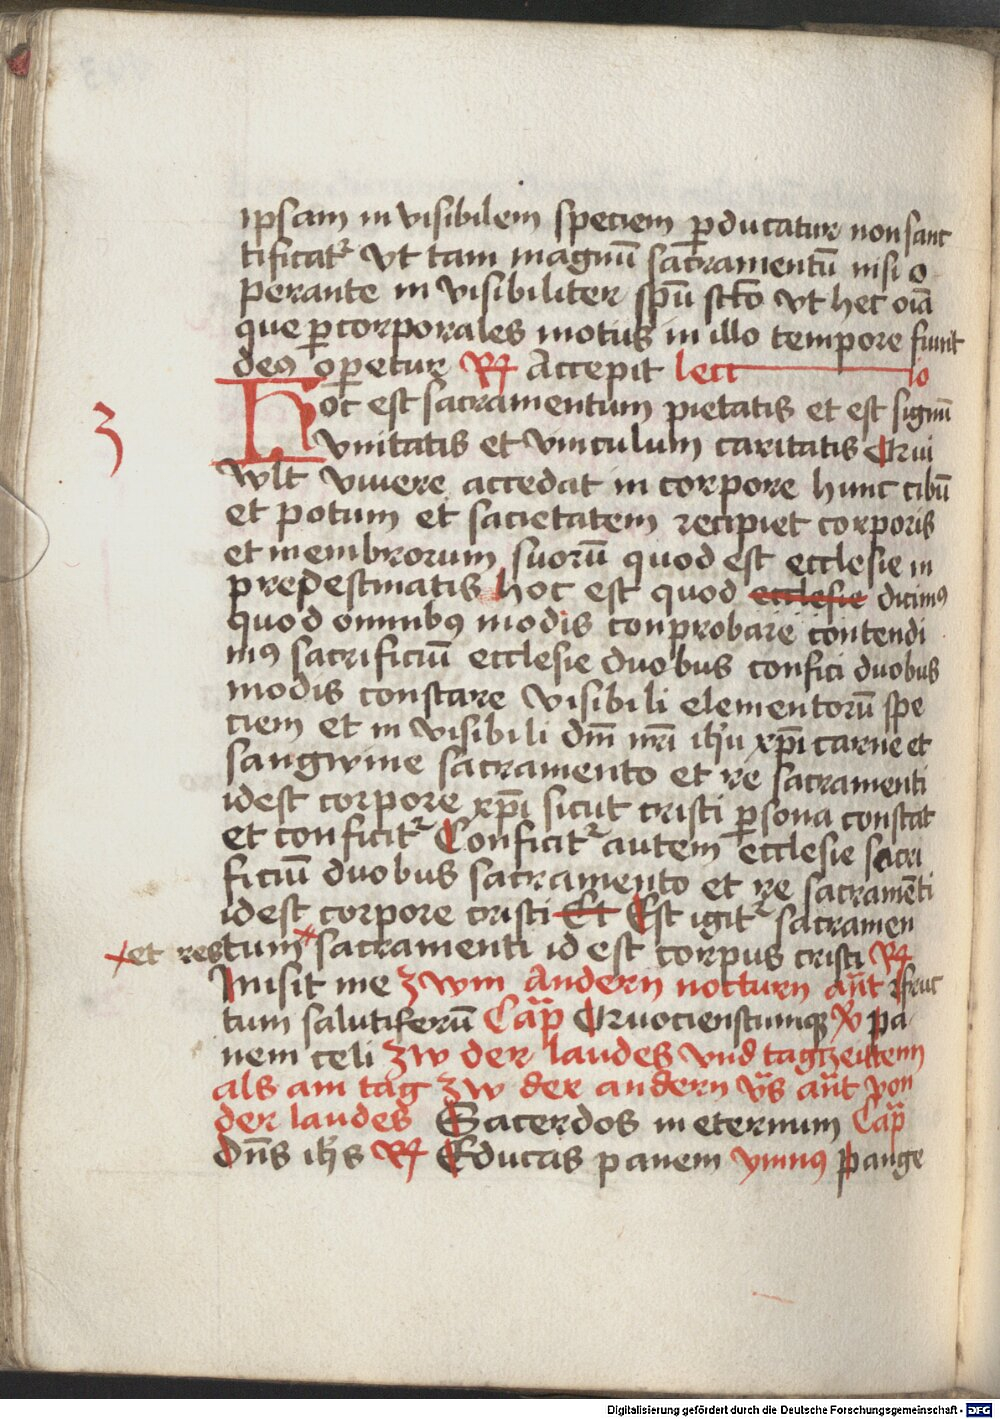 ipsam in visibilem speciem ꝑducatur non sanc
tificat᷑ Vt tam magnū sacramentū nisi o
perante in visibiliter spū scto vt hec oīa
que ꝑ corporales motus in illo tempore fiunt
deꝰ oꝑetur ℟ Accepit lectio
3
Hoc est sacramentum pietatis et est signū
vnitatis et vinculum caritatis Qui
wlt viuere accedat in corpore hunc cibū
et potum et sacietatem recipiet corporis
et membrorum suorū quod est ecclesie in
predestinatis hoc est quod ecclesie dicimꝰ
quod omnibꝰ modis conprobare contendi
mꝰ sacrificiū ecclesie duobus confici duobus
modis constare visibili elementorū spe
ciem et in visibili dn̄i nr̄i ih̄u xp̄i carne et
sangwine sacramento et re sacramenti
idest corpore xp̄i sicut cristi ꝑsona constat
et conficit᷑ Conficit᷑ autem ecclesie sacri
ficiū duobus sacramento et re sacramēti
idest corpore cristi Et Est igit᷑ sacramen
et res
tum sacramenti id est corpus cristi ℟
Misit me zwm andern nocturn an̄t fruc
tum salutiferū Cap̄ ℣ pa
nem celi zw der laudes vnd tagzeittenn
als am tag zw der andern v̄s an̄t von
der laudes Sacerdos in eternum Cap̄
Dn̄s ih̄s ℟ Educas panem ymnꝰ pange